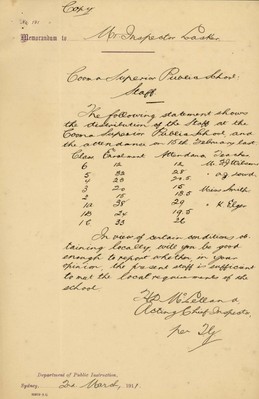 Copy
No. 181
Memorandum to Mr Inspector
Cooma Superior Public School:
Staff.
The following statement shows
the distribution of the staff at the
Cooma Superior Public School, and
the attendance on 15th February last.
Class Enrolment Attendance Teacher
6 12 12
5 32 28
4 23 20.5
3 20 16 Miss Smith
2 15 13.5
1A 38 29
1B 24 19.5
1C 33 26
In view of certain conditions ob-
taining locally, will you be good
enough to report whether, in your
opinion, the present staff is sufficient
to meet the local requirements of the
school.
McLelland
Acting Chief Inspector
per
Department of Public Instruction,
Sydney, March, 191